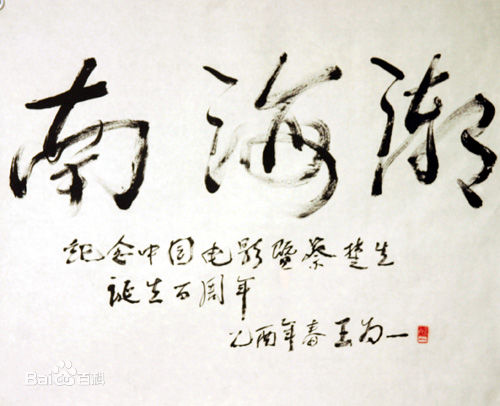 南海潮
纪念中国电影暨蔡楚生
诞生百周年
乙酉年春王为一
Baidu百科